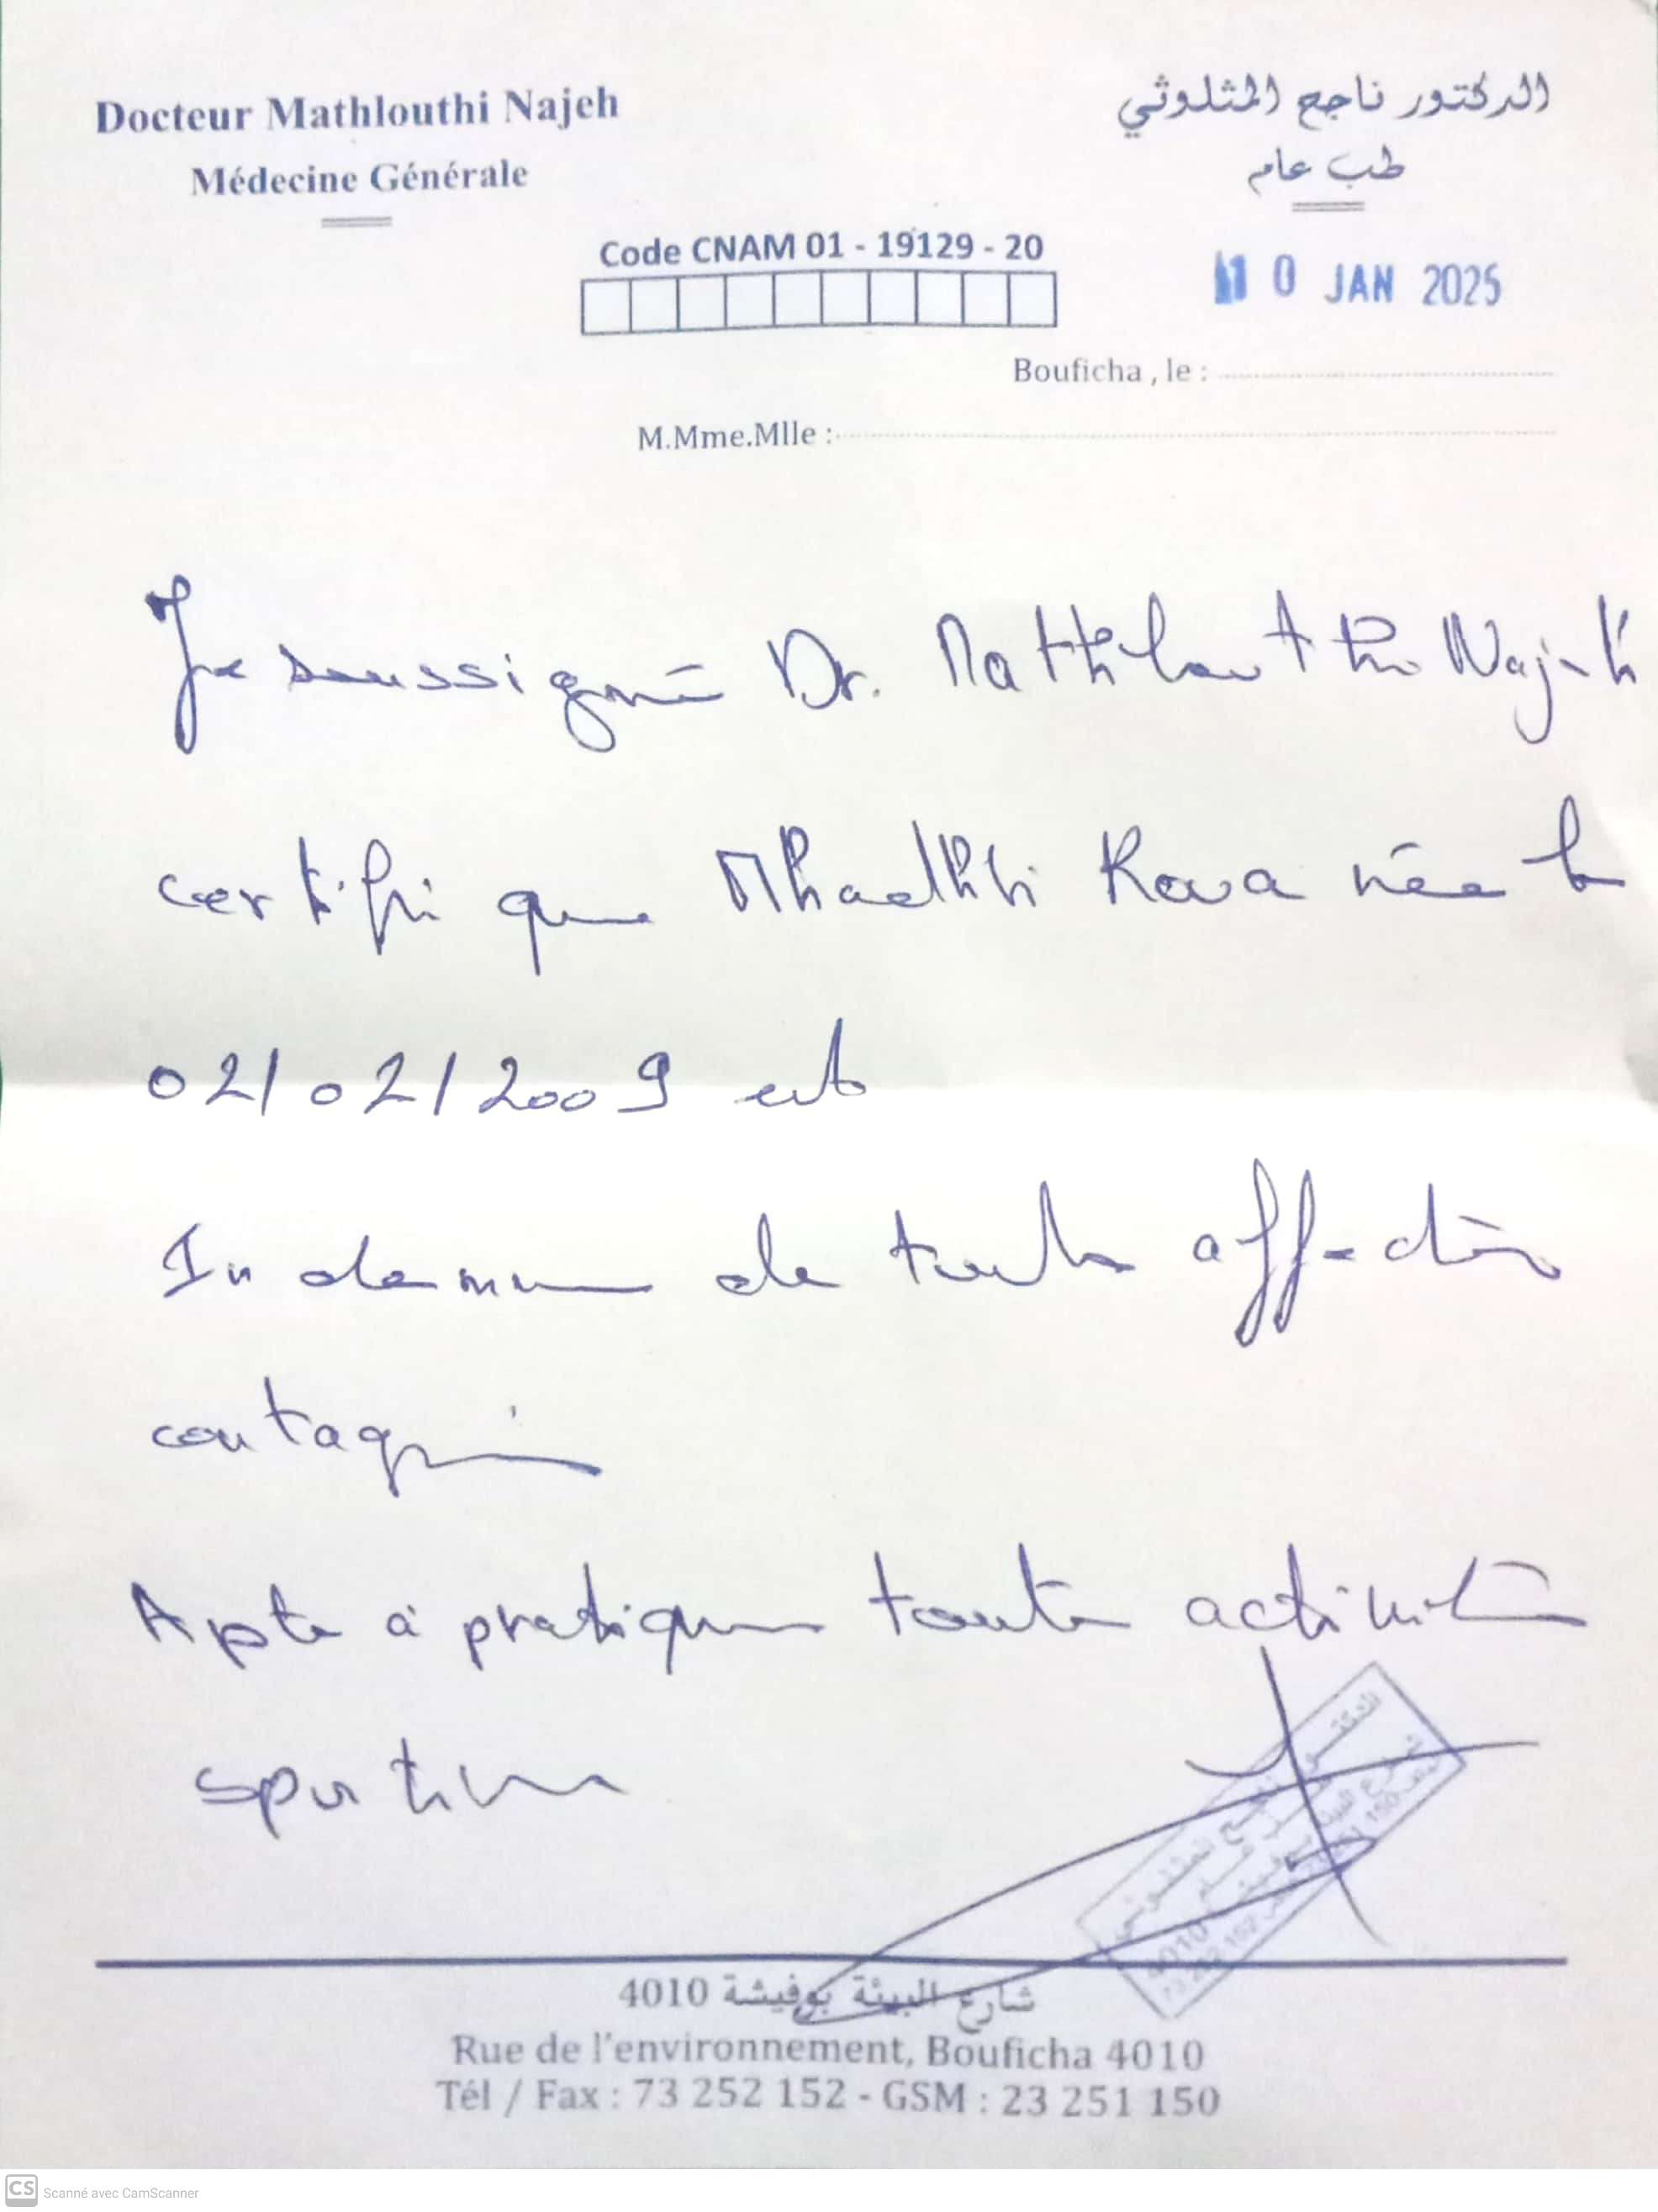 Docteur Mathlouthi Najeh
Médecine Générale
الدكتور ناجع المثلوثي
طب عام
Code CNAM 01 - 19129 - 20
10 JAN 2025
Bouficha , le :
M.Mme.Mlle :
Je soussigné Dr. Mathlouthi Najeh
certifie que Mhadhbi Rawa née le
02/02/2009 est
Indemne de toute affection
contagieuse
Apte à pratiquer toute activité
sportive
شارع البيئة بوفيشة 4010
Rue de l'environnement, Bouficha 4010
Tél / Fax : 73 252 152 - GSM : 23 251 150
CS Scanné avec CamScanner